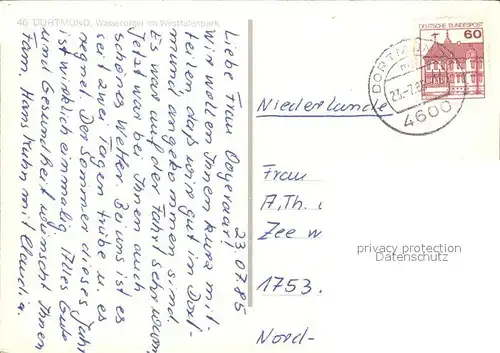 46 DORTMUND, Wasserorgel im Westfalenpark
23.07.85
Liebe Frau
Wir wollen Ihnen kurz mit-
teilen daß wir gut in Dort-
mund angekommen sind.
Es war auf der Fahrt sehr warm.
Jetzt war bei Ihnen auch
schönes Wetter. Bei uns ist es
seit zwei Tagen trübe u. es
regnet. Der Sommer dieses Jahr
ist wirklich einmalig. Alles Gute
und Gesundheit wünscht Ihnen
Fam. Hans Kuhn mit Claudia.
DEUTSCHE BUNDESPOST
60
DORTMUND
23.-7.85
4600
Niederlande
Frau
A.Th.
Zee w
1753.
Nord-
privacy protection
Datenschutz